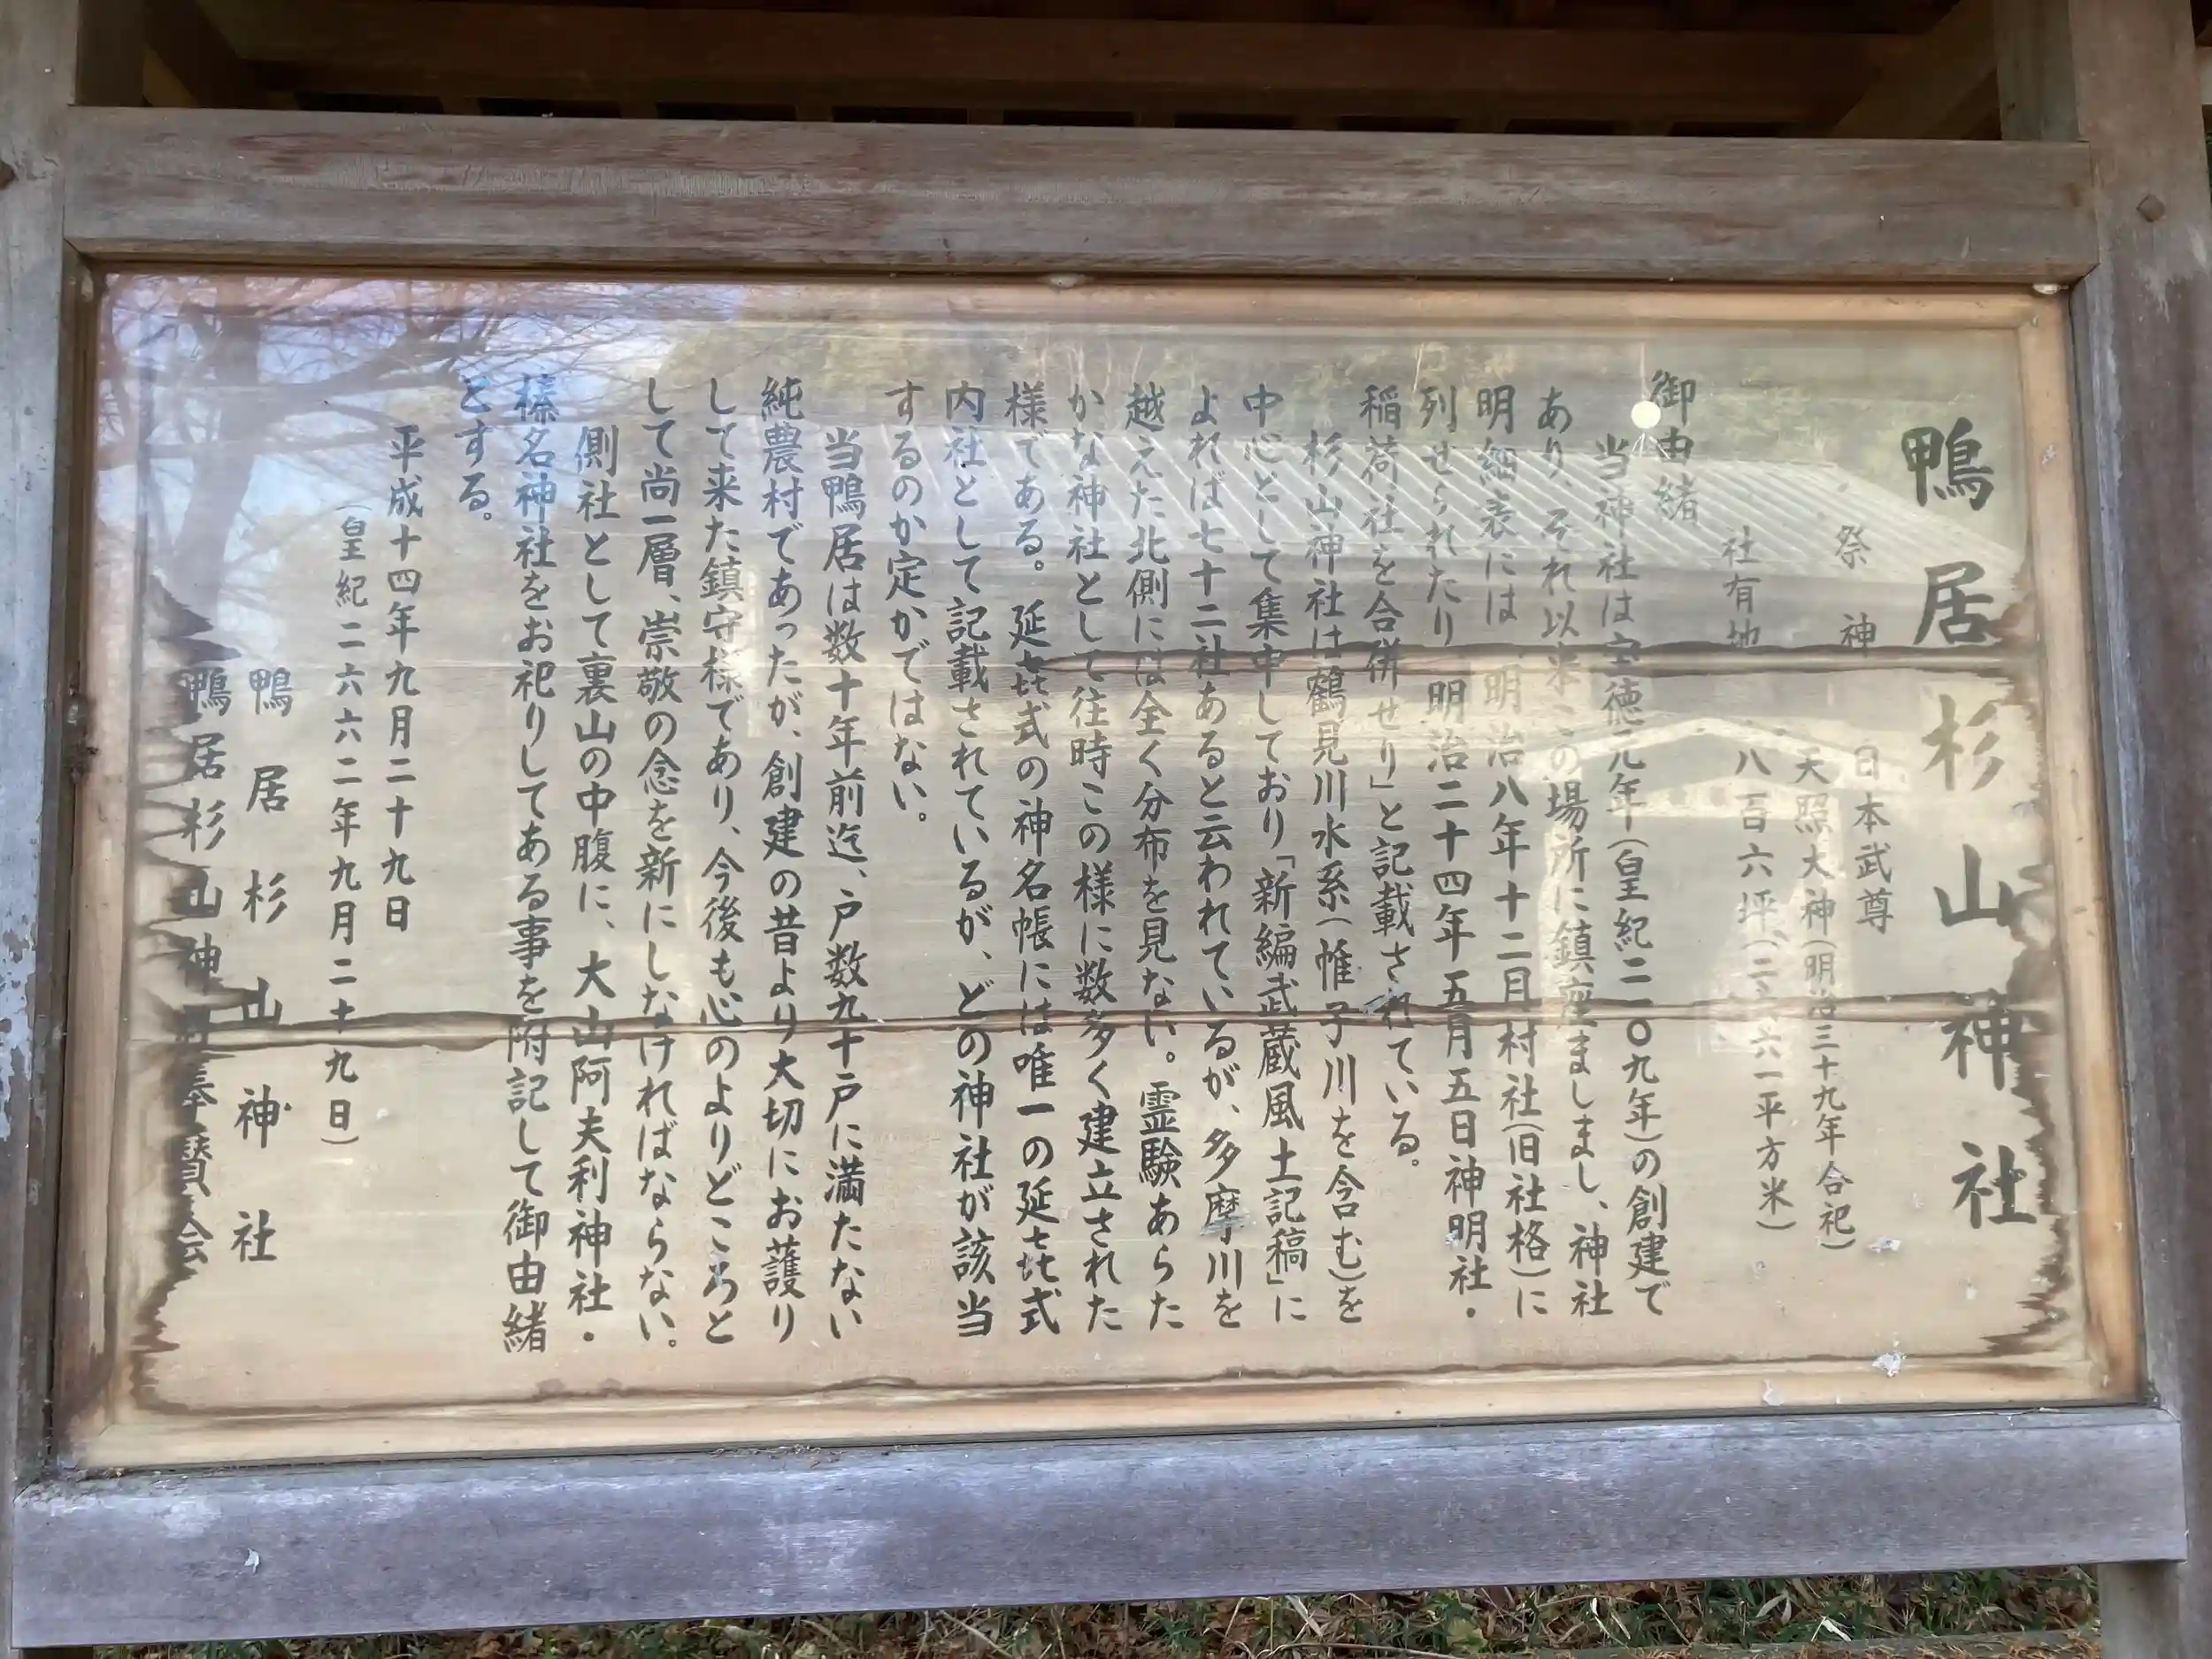 鴨居杉山神社
祭神
日本武尊
天照大神(明治三十九年合祀)
社有地
八百六坪(二六六一平方米)
御由緒
当神社は宝徳元年(皇紀二一〇九年)の創建で
あり、それ以来この場所に鎮座ましまし、神社
明細表には「明治八年十二月村社(旧社格)に
列せられたり 明治二十四年五月五日神明社・
稲荷社を合併せり」と記載されている。
杉山神社は鶴見川水系(帷子川を含む)を
中心として集中しており「新編武蔵風土記稿」に
よれば七十二社あると云われているが、多摩川を
越えた北側には全く分布を見ない。霊験あらた
かな神社として往時この様に数多く建立された
様である。延㐂式の神名帳には唯一の延㐂式
内社として記載されているが、どの神社が該当
するのか定かではない。
当鴨居は数十年前迄、戸数九十戸に満たない
純農村であったが、創建の昔より大切にお護り
して来た鎮守様であり、今後も心のよりどころと
して尚一層、崇敬の念を新にしなければならない。
側社として裏山の中腹に、大山阿夫利神社・
榛名神社をお祀りしてある事を附記して御由緒
とする。
平成十四年九月二十九日
(皇紀二六六二年九月二十九日)
鴨居杉山神社
鴨居杉山神社奉賛会